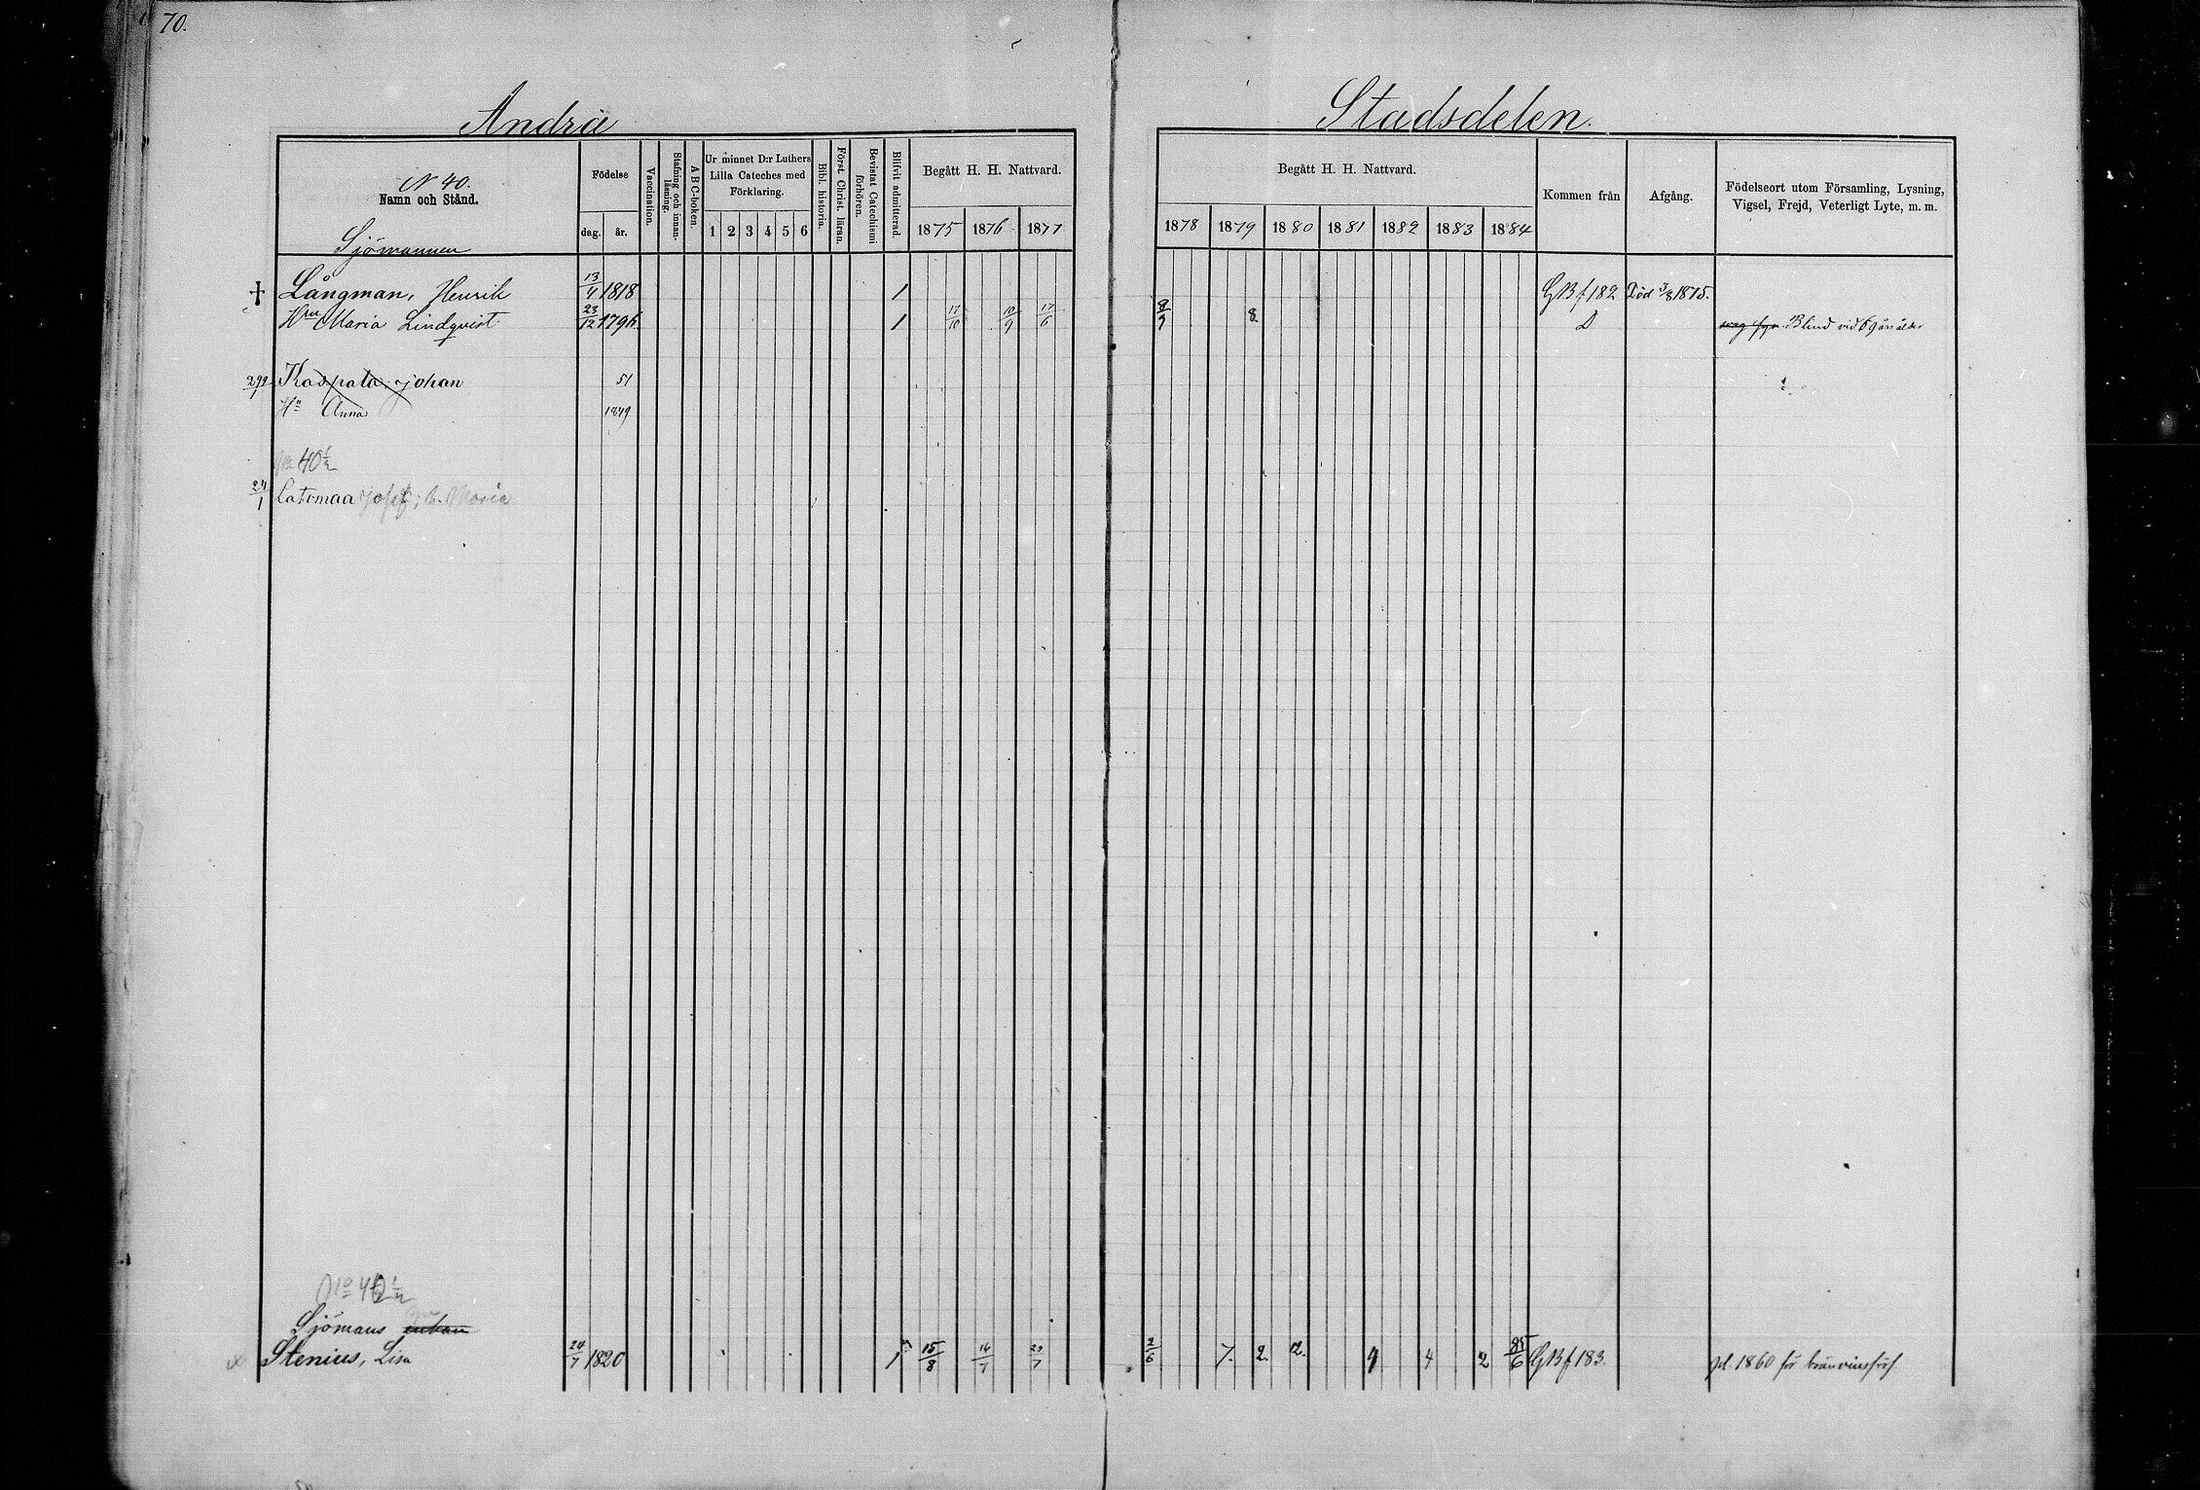 70.
Andra Stadsdelen.
N 40.
Namn och Stånd.
Födelse
dag. år.
Vaccination.
Stafning och innan-läsning.
A B C-boken.
Ur minnet D:r Luthers Lilla Cateches med Förklaring.
1 2 3 4 5 6
Bibl. historia.
Först. Christ. läran.
Bevistat Catechismi förhören.
Blifvit admitterad.
Begått H. H. Nattvard.
1875 1876 1877
Begått H. H. Nattvard.
1878 1879 1880 1881 1882 1883 1884
Kommen från
Afgång.
Födelseort utom Församling, Lysning, Vigsel, Frejd, Veterligt Lyte, m. m.
Sjömannen
† Långman, Henrik 13/4 1818 1 GBf 182 Död 3/8 1875.
Hru Maria Lindqvist 23/12 1796 1 17/10 10/9 17/6 8/9 8. D Blind vid 69 års ålder
Johan 51
Hu Anna 1849
No 40½
24/1 Latomaa Josef, h. Maria
No 40½
Sjömans enkan
Stenius, Lisa 24/7 1820 1 15/8 16/7 29/7 2/6 7. 2. 12. 9 4 2 85/6 GBf 183. pl. 1860 för